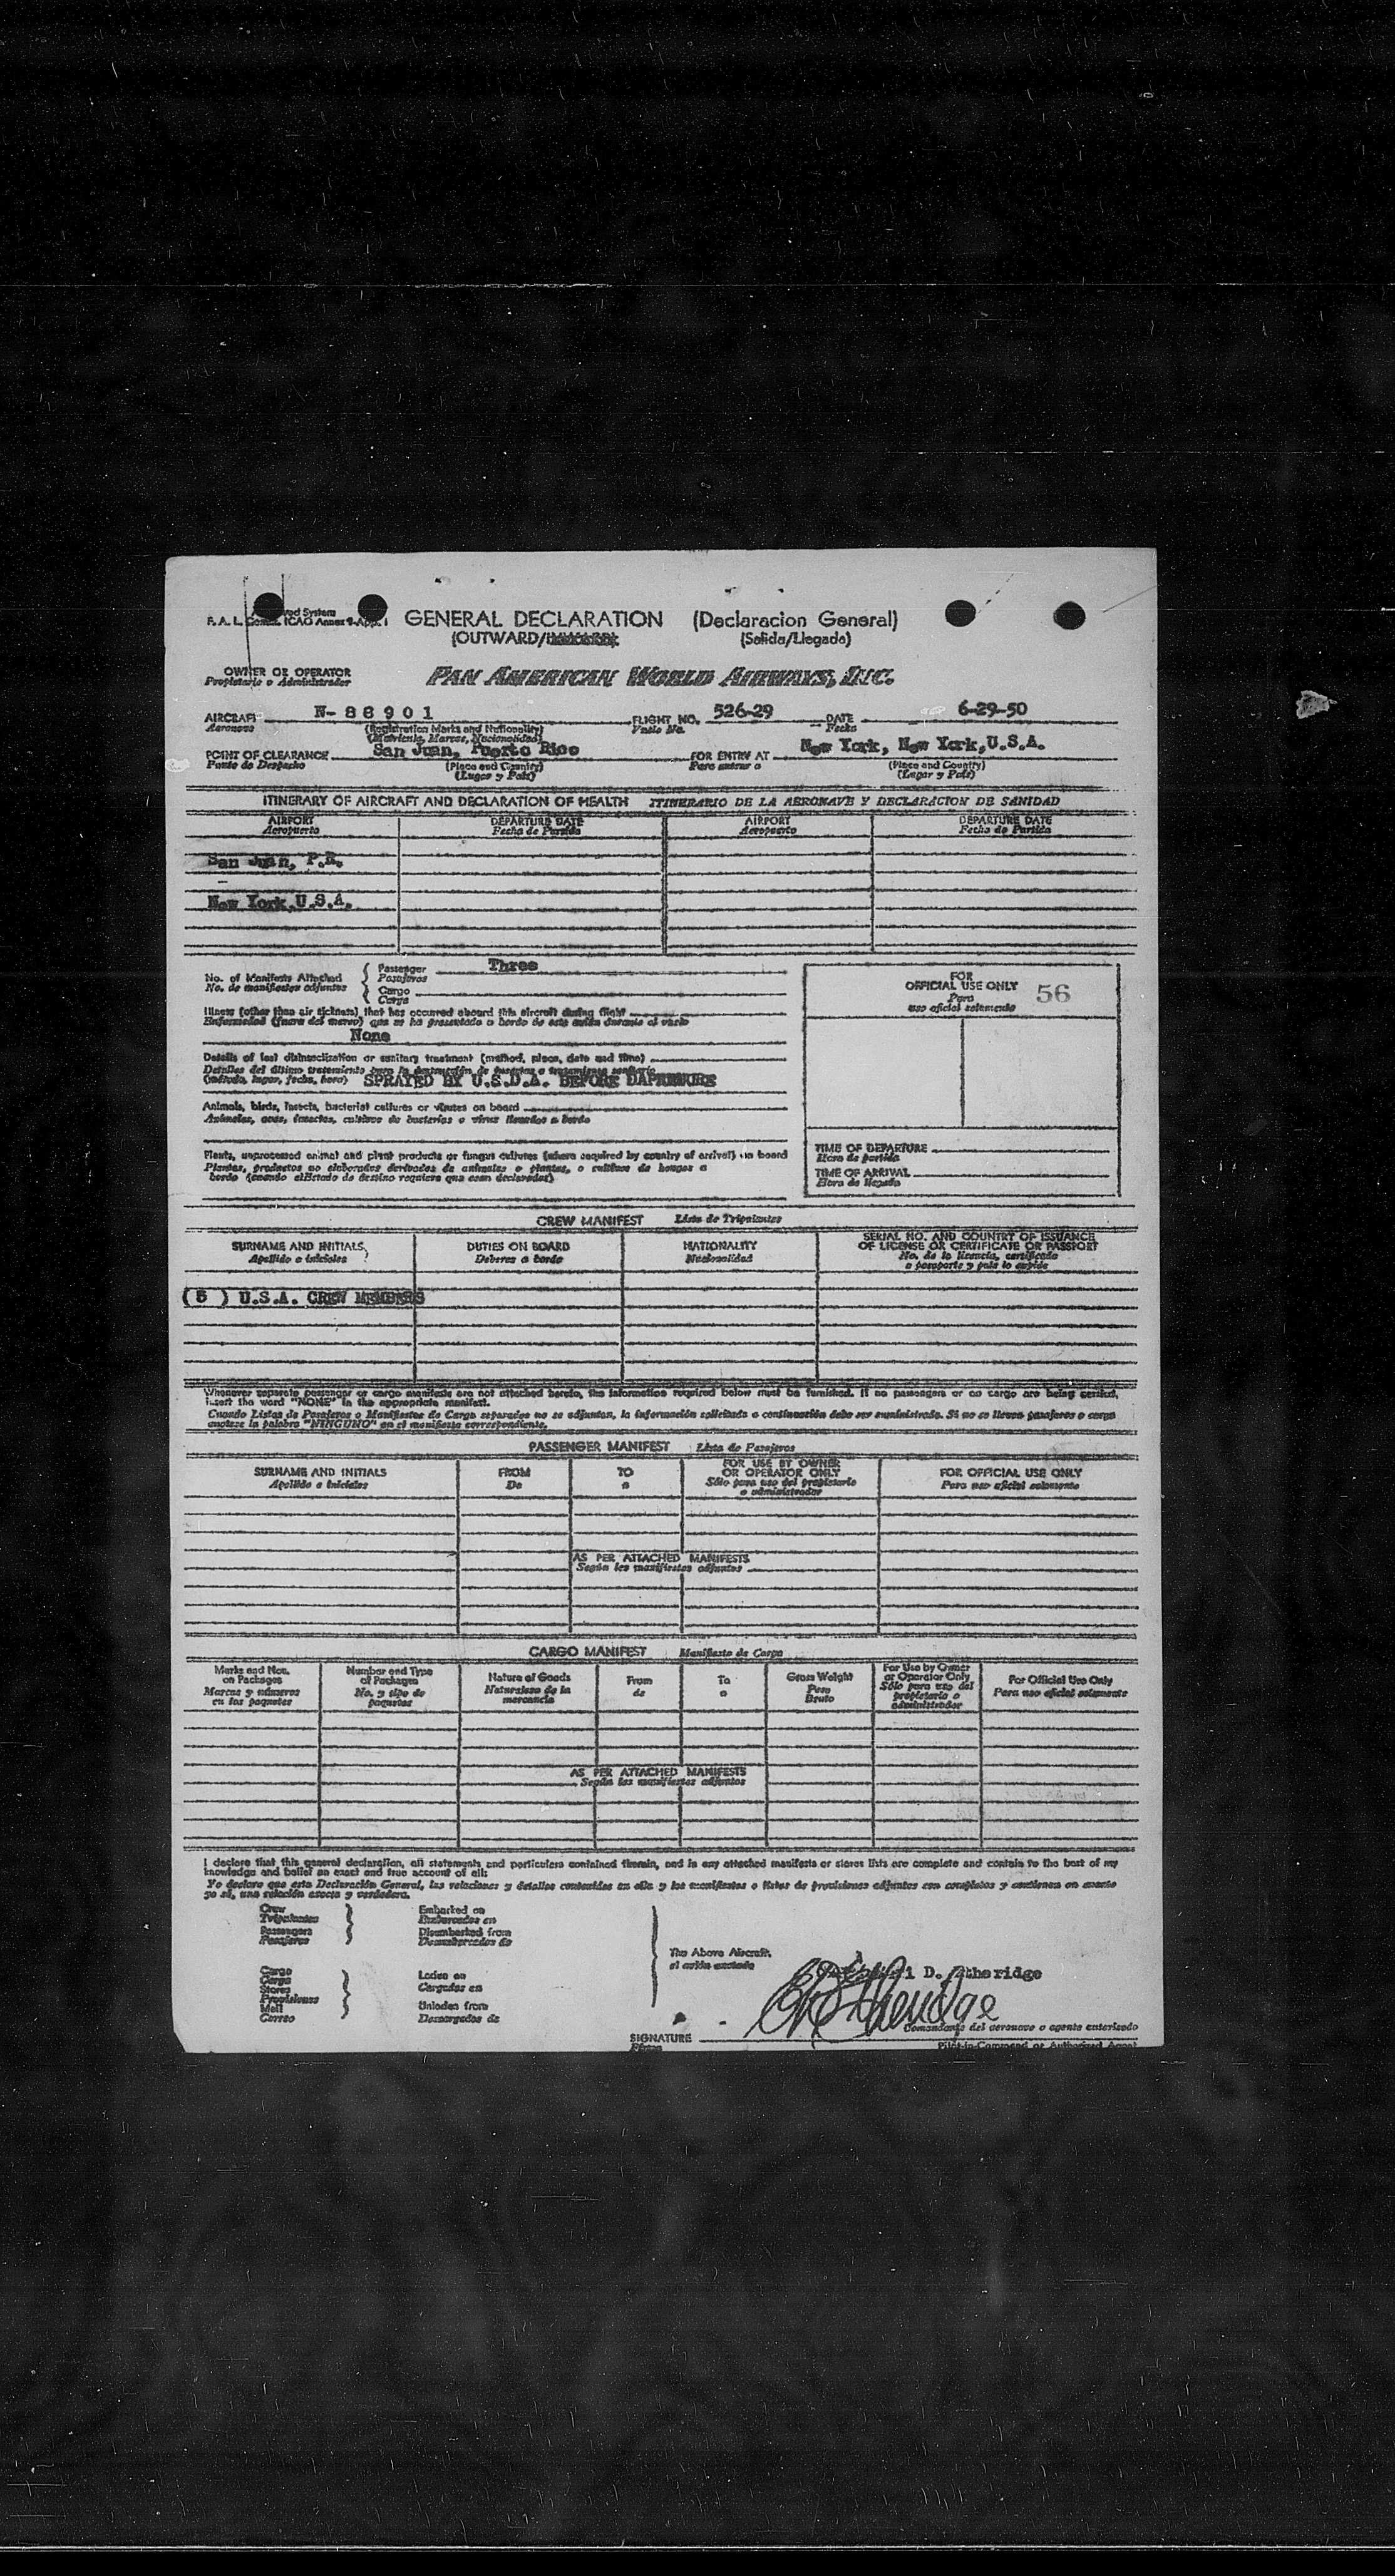 GENERAL DECLARATION (Declaracion General)
(OUTWARD/ (Salida/Llegada)
OWNER OR OPERATOR
Propietario o Administrador
PAN AMERICAN WORLD AIRWAYS, INC.
AIRCRAFT N-88901 FLIGHT NO. 526-29 DATE 6-29-50
Aeronave (Registration Marks and Nationality) Vuelo No. Fecha
(Matricula, Marcas, Nacionalidad)
POINT OF CLEARANCE San Juan, Puerto Rico FOR ENTRY AT New York, New York,U.S.A.
Punto de Despacho (Place and Country) Para entrar a (Place and Country)
(Lugar y Pais) (Lugar y Pais)
ITINERARY OF AIRCRAFT AND DECLARATION OF HEALTH ITINERARIO DE LA AERONAVE Y DECLARACION DE SANIDAD
AIRPORT DEPARTURE DATE AIRPORT DEPARTURE DATE
Aeropuerto Fecha de Partida Aeropuerto Fecha de Partida
San Juan, P.R.
New York,U.S.A.
No. of Manifests Attached Passenger Three
No. de manifiestos adjuntos Pasajeros
Cargo
Carga
Illness (other than air sickness) that has occurred aboard this aircraft during flight
Enfermedad (fuera del mareo) que se ha presentado a bordo de este avión durante el vuelo
None
Details of last disinsectization or sanitary treatment (method, place, date and time)
Detalles del último tratamiento para la destrucción de insectos o tratamiento sanitario
(método, lugar, fecha, hora) SPRAYED BY U.S.D.A. BEFORE DAPREMURE
Animals, birds, insects, bacterial cultures or viruses on board
Animales, aves, insectos, cultivos de bacterias o virus llevados a bordo
Plants, unprocessed animal and plant products or fungus cultures (where required by country of arrival) on board
Plantas, productos no elaborados derivados de animales o plantas, o cultivos de hongos a
bordo (cuando el Estado de destino requiera que sean declarados)
FOR
OFFICIAL USE ONLY 56
Para
uso oficial solamente
TIME OF DEPARTURE
Hora de partida
TIME OF ARRIVAL
Hora de llegada
CREW MANIFEST Lista de Tripulantes
SURNAME AND INITIALS DUTIES ON BOARD NATIONALITY SERIAL NO. AND COUNTRY OF ISSUANCE
OF LICENSE OR CERTIFICATE OR PASSPORT
Apellido e iniciales Deberes a bordo Nacionalidad No. de la licencia, certificado
o pasaporte y pais lo expide
( 5 ) U.S.A. CREW MEMBERS
Whenever separate passenger or cargo manifests are not attached hereto, the information required below must be furnished. If no passengers or no cargo are being carried,
insert the word "NONE" in the appropriate manifest.
Cuando Listas de Pasajeros o Manifiestos de Carga separados no se adjuntan, la información solicitada a continuación debe ser suministrada. Si no se llevan pasajeros o carga
anotese la palabra "NINGUNO" en el manifiesto correspondiente.
PASSENGER MANIFEST Lista de Pasajeros
SURNAME AND INITIALS FROM TO FOR USE BY OWNER
OR OPERATOR ONLY FOR OFFICIAL USE ONLY
Apellido e iniciales De a Sólo para uso del propietario
o administrador Para uso oficial solamente
AS PER ATTACHED MANIFESTS
Según los manifiestos adjuntos
CARGO MANIFEST Manifiesto de Carga
Marks and Nos.
on Packages
Marcas y números
en los paquetes
Number and Type
of Packages
No. y tipo de
paquetes
Nature of Goods
Naturaleza de la
mercancia
From
de
To
a
Gross Weight
Peso
Bruto
For Use by Owner
or Operator Only
Sólo para uso del
propietario o
administrador
For Official Use Only
Para uso oficial solamente
AS PER ATTACHED MANIFESTS
Según los manifiestos adjuntos
I declare that this general declaration, all statements and particulars contained therein, and in any attached manifests or stores lists are complete and contain to the best of my
knowledge and belief an exact and true account of all:
Yo declaro que esta Declaración General, las relaciones y detalles contenidos en ella y los manifiestos o listas de provisiones adjuntos son completos y contienen en cuanto
yo sé, una relación exacta y verdadera.
Crew Embarked on
Tripulantes Embarcados en
Passengers Disembarked from
Pasajeros Desembarcados de
The Above Aircraft
Cargo
Carga
Stores
Provisiones
Mail
Correo
Laden on
Cargados en
Unladen from
Descargados de
D. Etheridge
SIGNATURE
Firma
Comandante del aeronave o agente autorizado
Pilot-in-Command or Authorized Agent